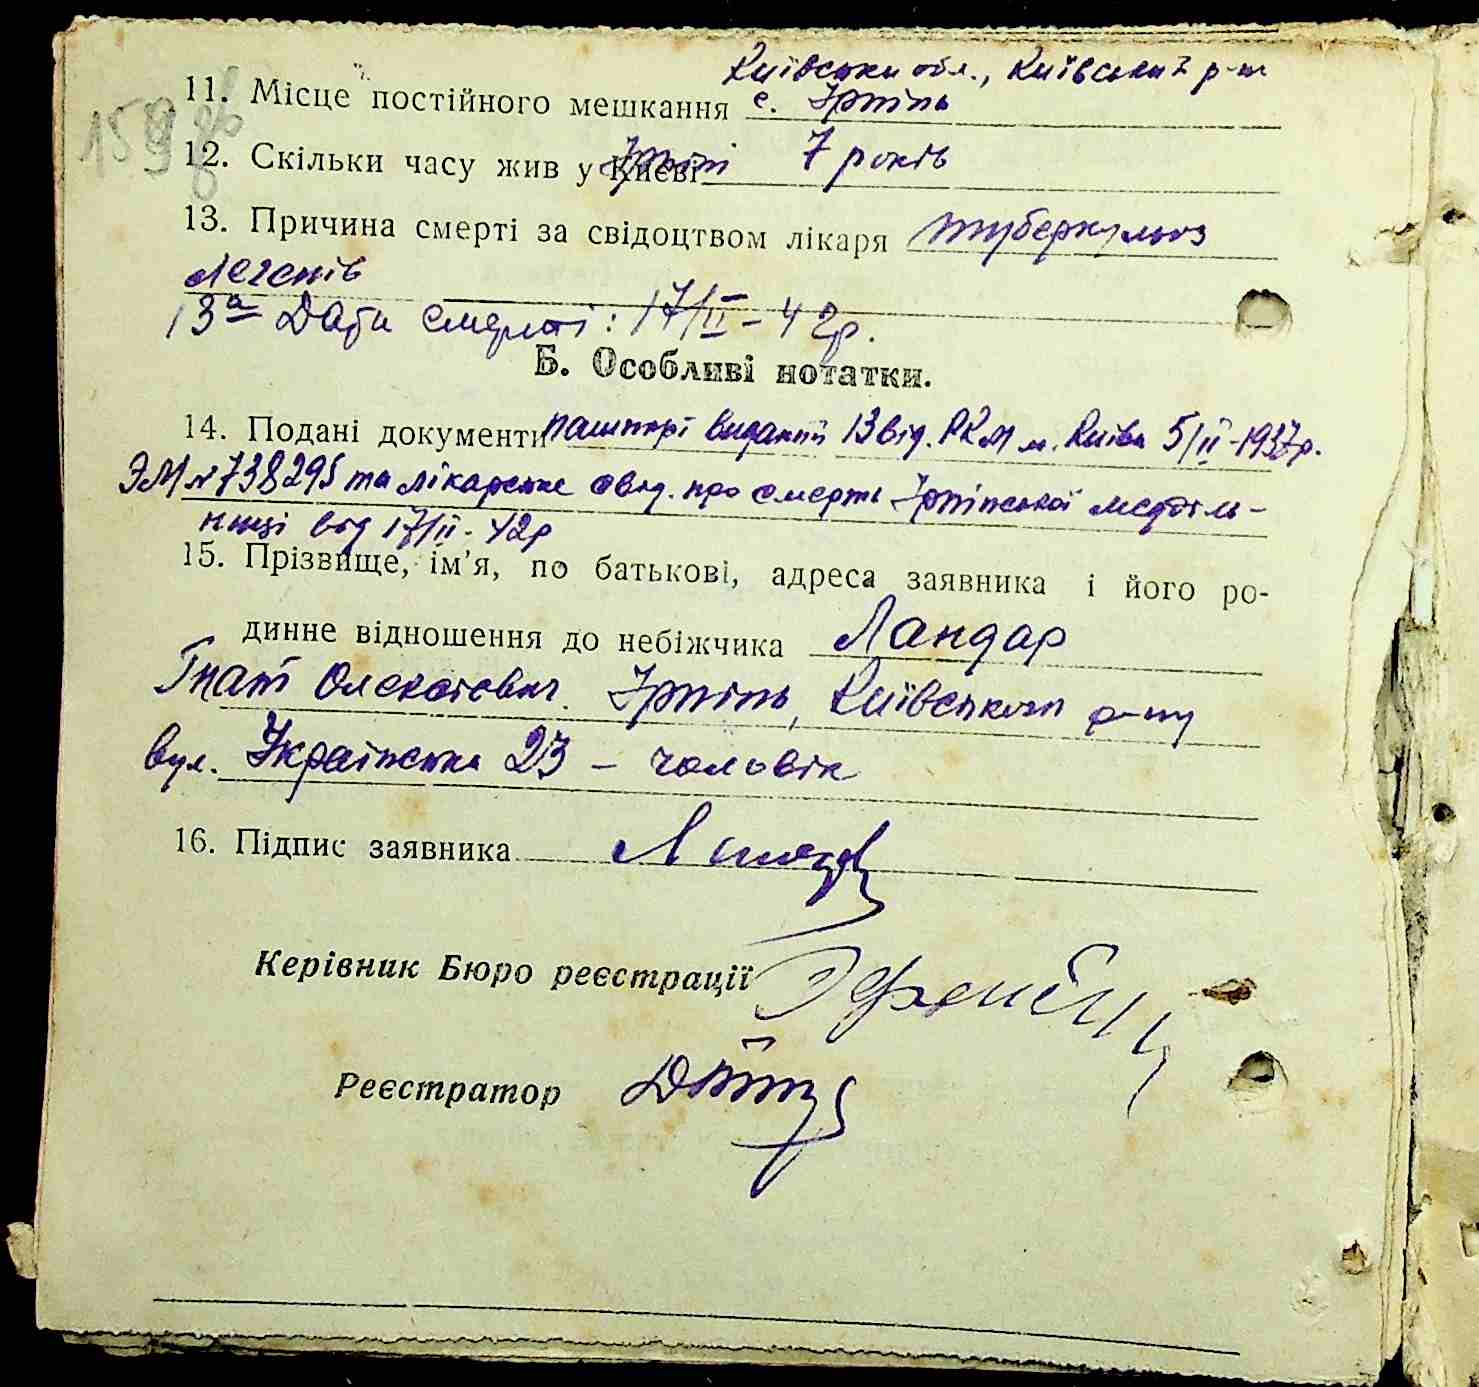 Київська обл., Київський р-н
11. Місце постійного мешкання с. Ірпінь
159
12. Скільки часу жив у Києві Ірпіні 7 років
13. Причина смерті за свідоцтвом лікаря туберкульоз
легенів
13а Дата смерті: 17/II - 42р.
Б. Особливі нотатки.
14. Подані документи пашпорт виданий 13 від. РКМ м. Київа 5/II-1937р.
ЭМ № 738295 та лікарське свід. про смерть Ірпінської медділь-
ниці від 17/II - 42р
15. Прізвище, ім'я, по батькові, адреса заявника і його ро-
динне відношення до небіжчика Ландар
Гнат Олексійович. Ірпінь, Київського р-ну
вул. Українська 23 – чоловік
16. Підпис заявника
Керівник Бюро реєстрації
Реєстратор